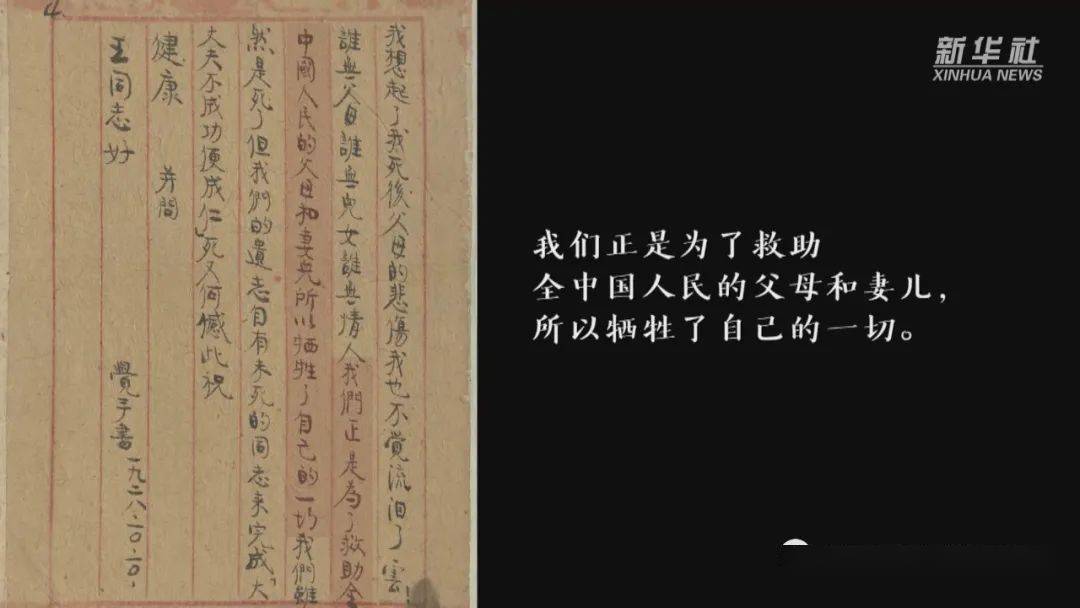 4.
我想起了我死後父母的悲傷我也不覺流泪了雲!
誰無父母誰無兒女誰無情人我們正是為了救助全
中國人民的父母和妻兒所以牺牲了自己的一切我們雖
然是死了但我們的遺志自有未死的同志来完成「大
丈夫不成功便成仁」死又何憾此祝
健康 并問
王同志好
覺予書 一九二八.一〇.一〇.
新华社
XINHUA NEWS
我们正是为了救助
全中国人民的父母和妻儿，
所以牺牲了自己的一切。